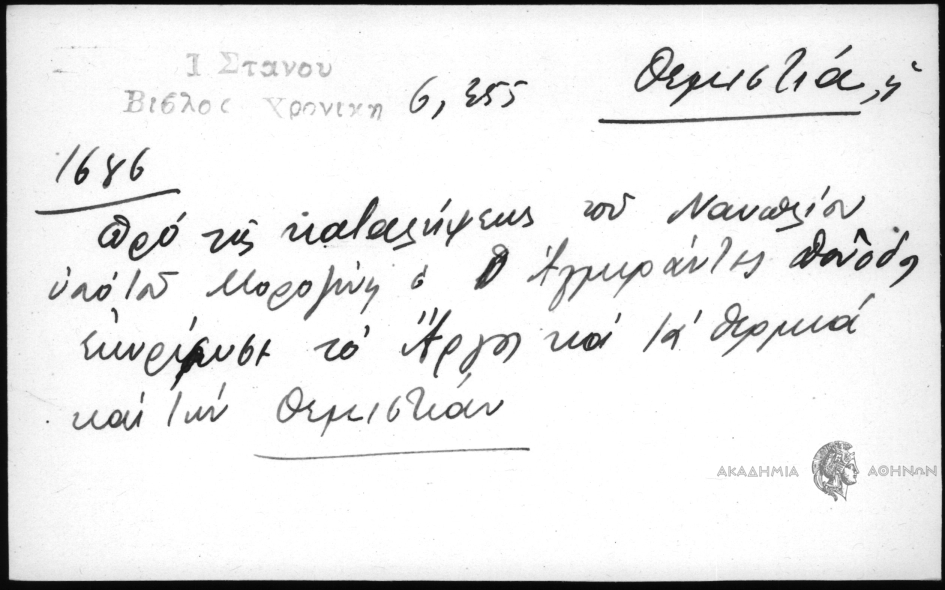 Ι Στανου
Βιβλος Χρονικη 6, 355 Θεμιστιά, ἡ
1686
Πρό τῆς καταλήψεως τοῦ Ναυπλίου
ὑπό τοῦ Μοροζίνη ὁ Ἀλμεράντες
ἐκυρίευσε τό Ἄργος καί τά θερμιά
καί τήν Θεμιστιάν
ΑΚΑΔΗΜΙΑ ΑΘΗΝΩΝ